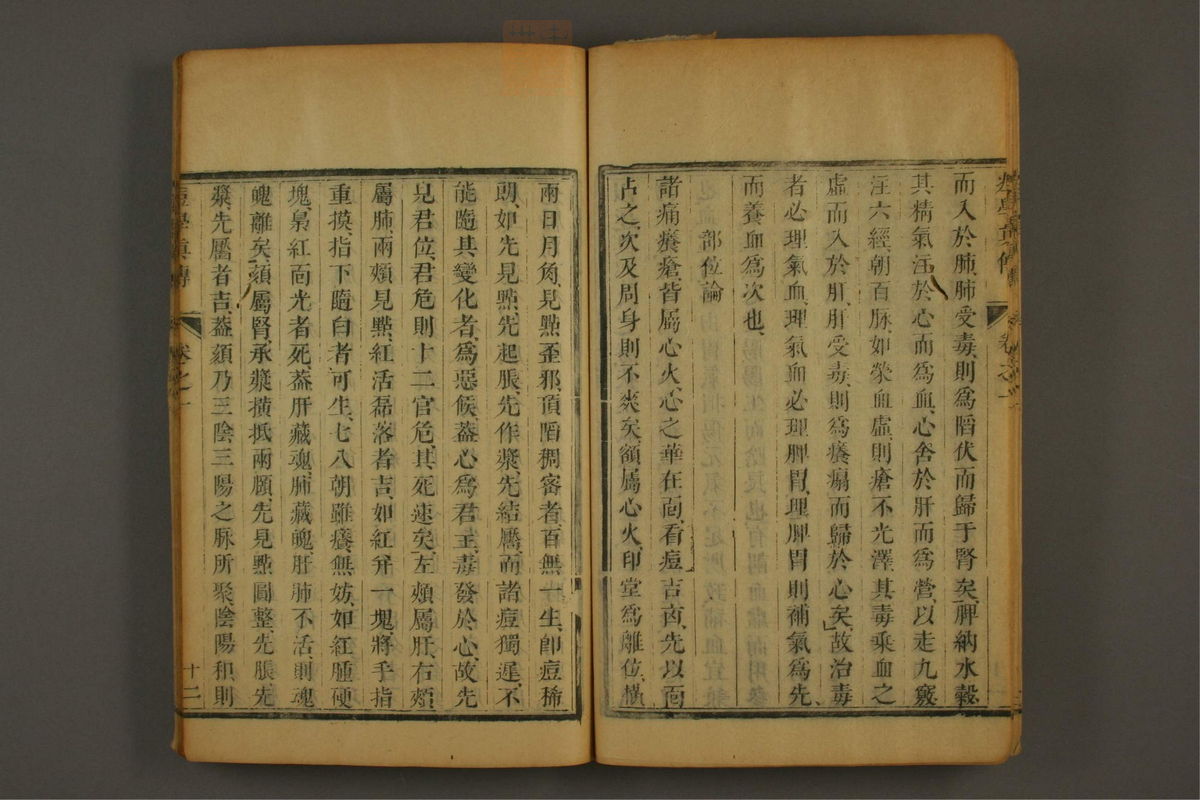 而入於肺肺受毒則爲陷伏而歸于腎矣脾納水穀
其精氣注於心而爲血心舍於肝而爲營以走九竅
注六經朝百脉如榮血虛則瘡不光澤其毒乘血之
虛而入於肝肝受毒則爲癢塌而歸於心矣故治毒
者必理氣血理氣血必理脾胃理脾胃則補氣爲先
而養血爲次也
部位論
諸痛癢瘡皆屬心火心之華在面看痘吉凶先以面
占之次及周身則不爽矣額屬心火印堂爲離位橫
兩日月角見點歪邪頂陷稠密者百無一生卽痘稀
朗如先見點先起脹先作漿先結靨而諸痘獨遲不
能隨其變化者爲惡候蓋心爲君主毒發於心故先
見君位君危則十二官危其死速矣左頰屬肝右頰
屬肺兩頰見點紅活磊落者吉如紅弁一塊將手指
重摸指下隨白者可生七八朝雖癢無妨如紅腫硬
塊梟紅而光者死蓋肝藏魂肺藏魄肝肺不活則魂
魄離矣頦屬腎承漿橫抵兩頤先見點圓整先脹先
漿先靨者吉蓋頦乃三陰三陽之脉所聚陰陽和則
痘學眞傳
卷之一
十二